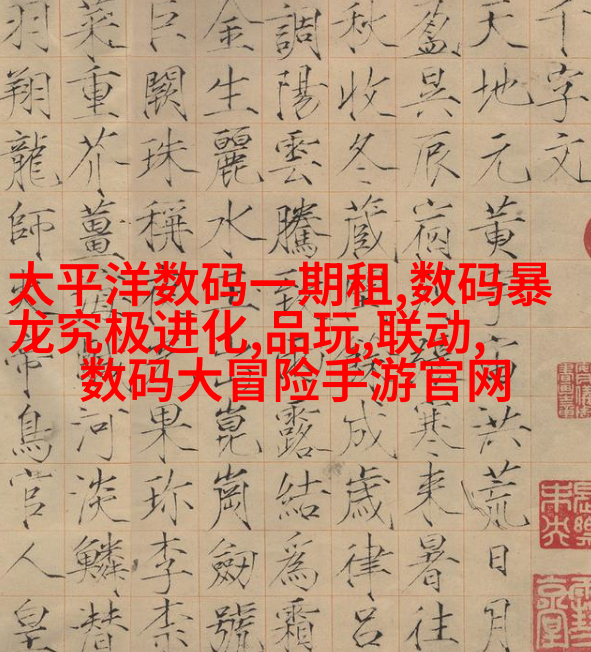 太平洋数码一期租,数码暴
龙究极进化,品玩,联动,
数码大冒险手游官网
千字文
天地元黄宙洪荒日月
盈昃辰宿寒来暑往
秋收冬蔵成歲律吕
調陽雲騰露結為霜
金生麗水崑崗劒號
巨闕珠稱果珍李柰
菜重芥薑河淡鱗潜
羽翔龍師帝鳥官人皇